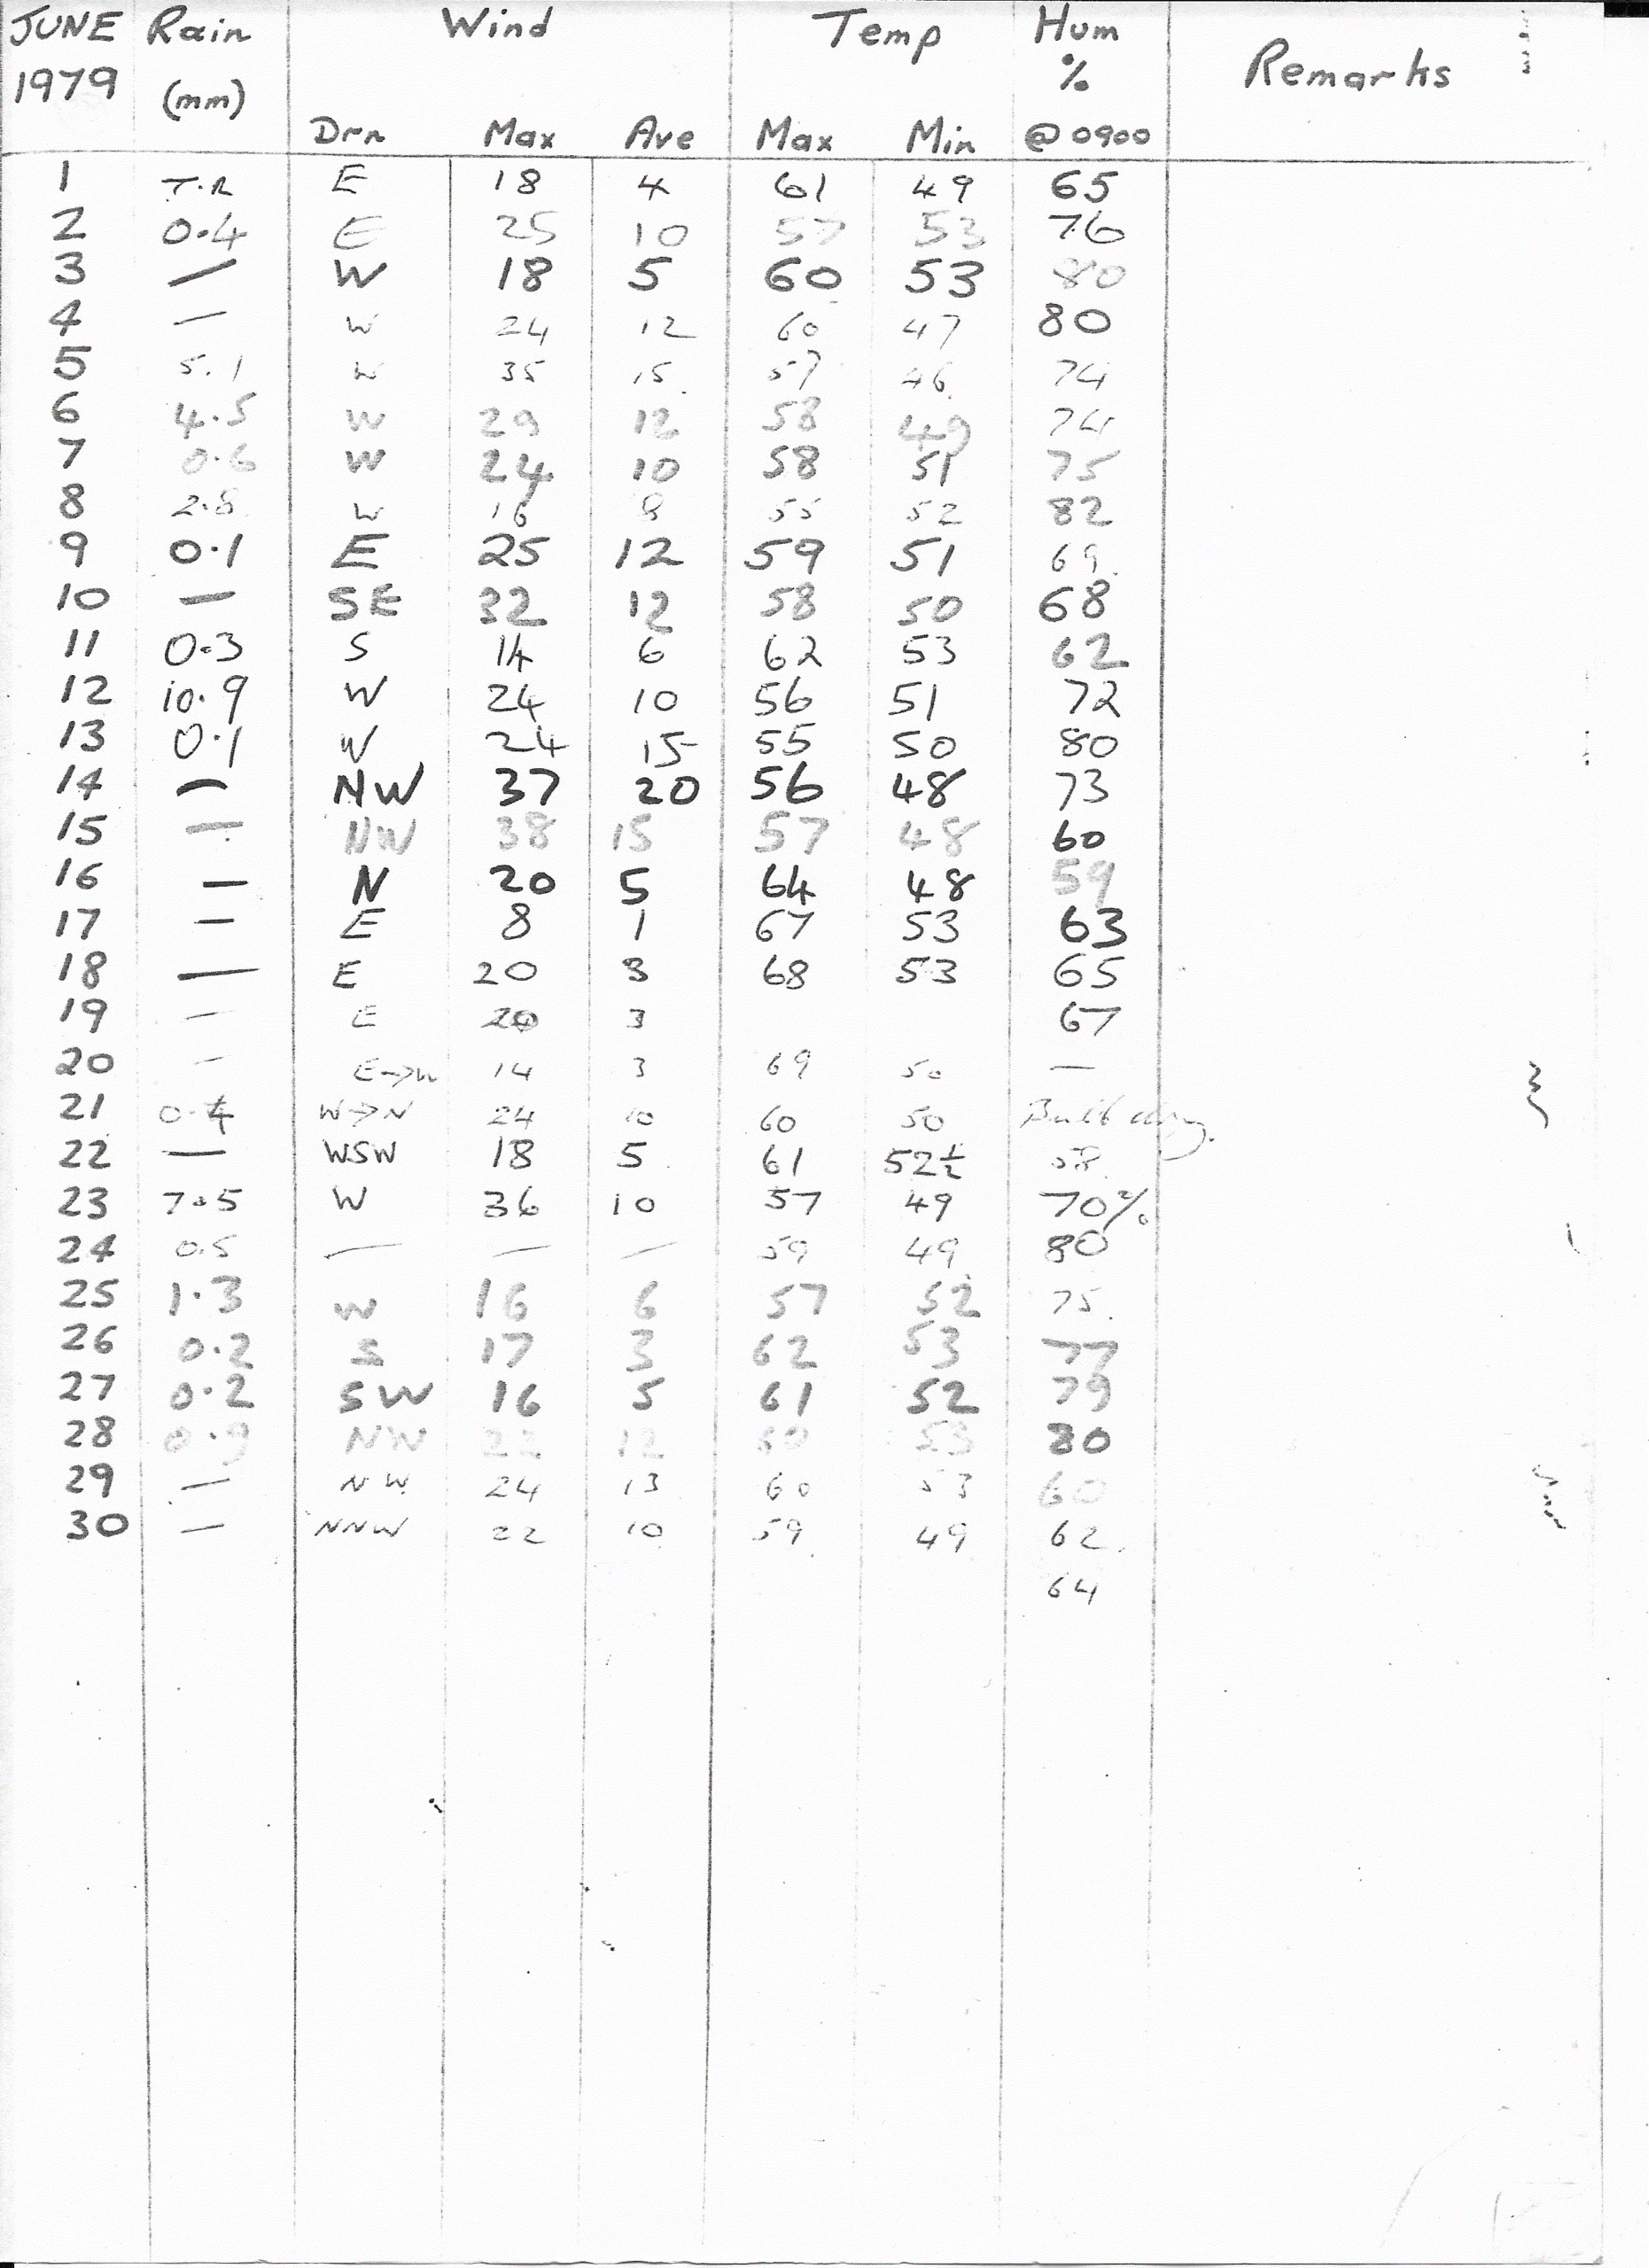 JUNE Rain Wind Temp Hum Remarks
1979 (mm) %
Drn Max Ave Max Min @ 0900
1 T.R E 18 4 61 49 65
2 0.4 E 25 10 57 53 76
3 — W 18 5 60 53 80
4 — W 24 12 60 47 80
5 5.1 W 35 15 57 46 74
6 4.5 W 29 12 58 49 74
7 0.6 W 24 10 58 51 75
8 2.8 W 16 8 55 52 82
9 0.1 E 25 12 59 51 69
10 — SE 32 12 58 50 68
11 0.3 S 14 6 62 53 62
12 10.9 W 24 10 56 51 72
13 0.1 W 24 15 55 50 80
14 — NW 37 20 56 48 73
15 — NW 38 15 57 48 60
16 — N 20 5 64 48 59
17 — E 8 1 67 53 63
18 — E 20 3 68 53 65
19 — E 3 67
20 — E→W 14 3 69 50 —
21 0.4 W→N 24 10 60 50 Bulb dry.
22 — WSW 18 5 61 52½ 58
23 7.5 W 36 10 57 49 70%
24 0.5 — — — 59 49 80
25 1.3 W 16 6 57 52 75
26 0.2 S 17 3 62 53 77
27 0.2 SW 16 5 61 52 79
28 0.9 NW 22 12 53 80
29 — NW 24 13 60 53 60
30 — NNW 22 10 59 49 62
64